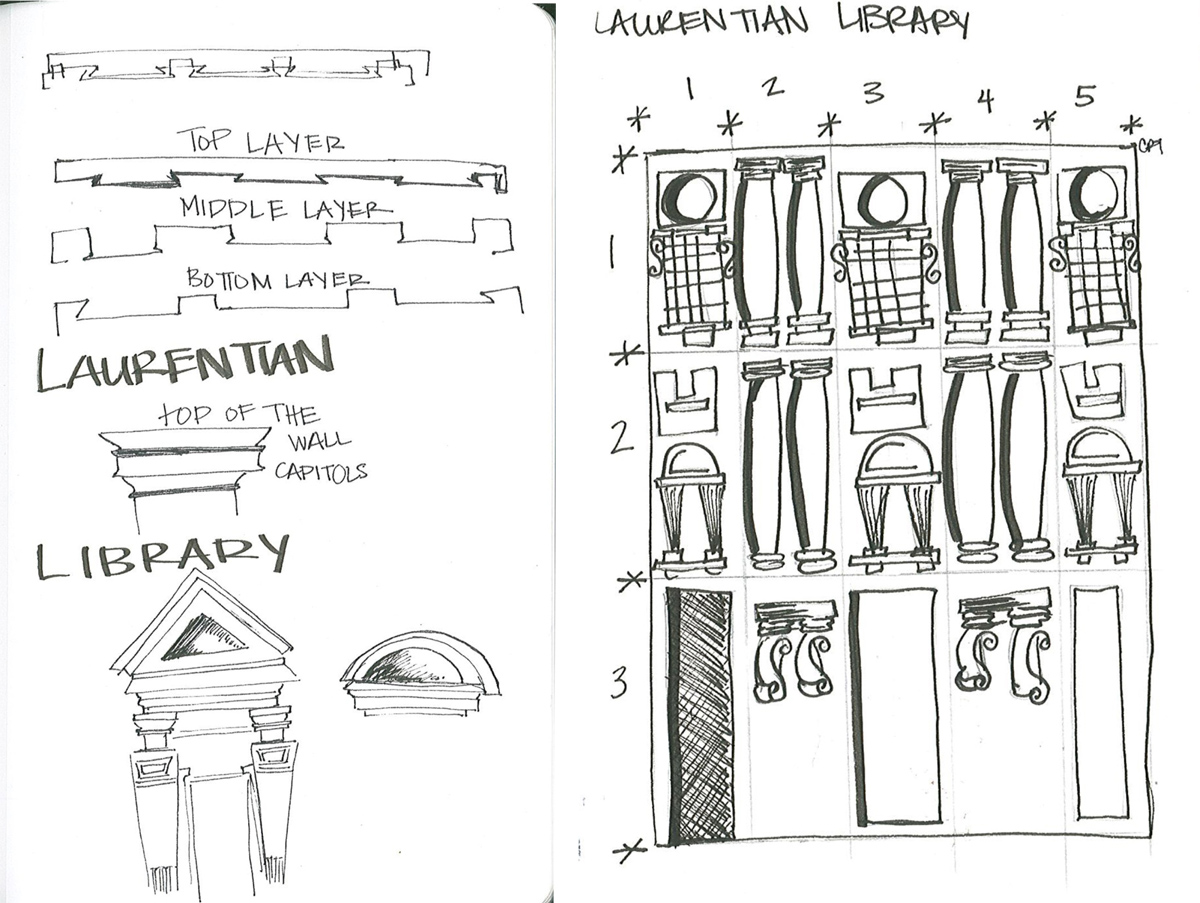 TOP LAYER
MIDDLE LAYER
BOTTOM LAYER
LAURENTIAN
TOP OF THE
WALL
CAPITOLS
LIBRARY
LAURENTIAN LIBRARY
1 2 3 4 5
1
2
3